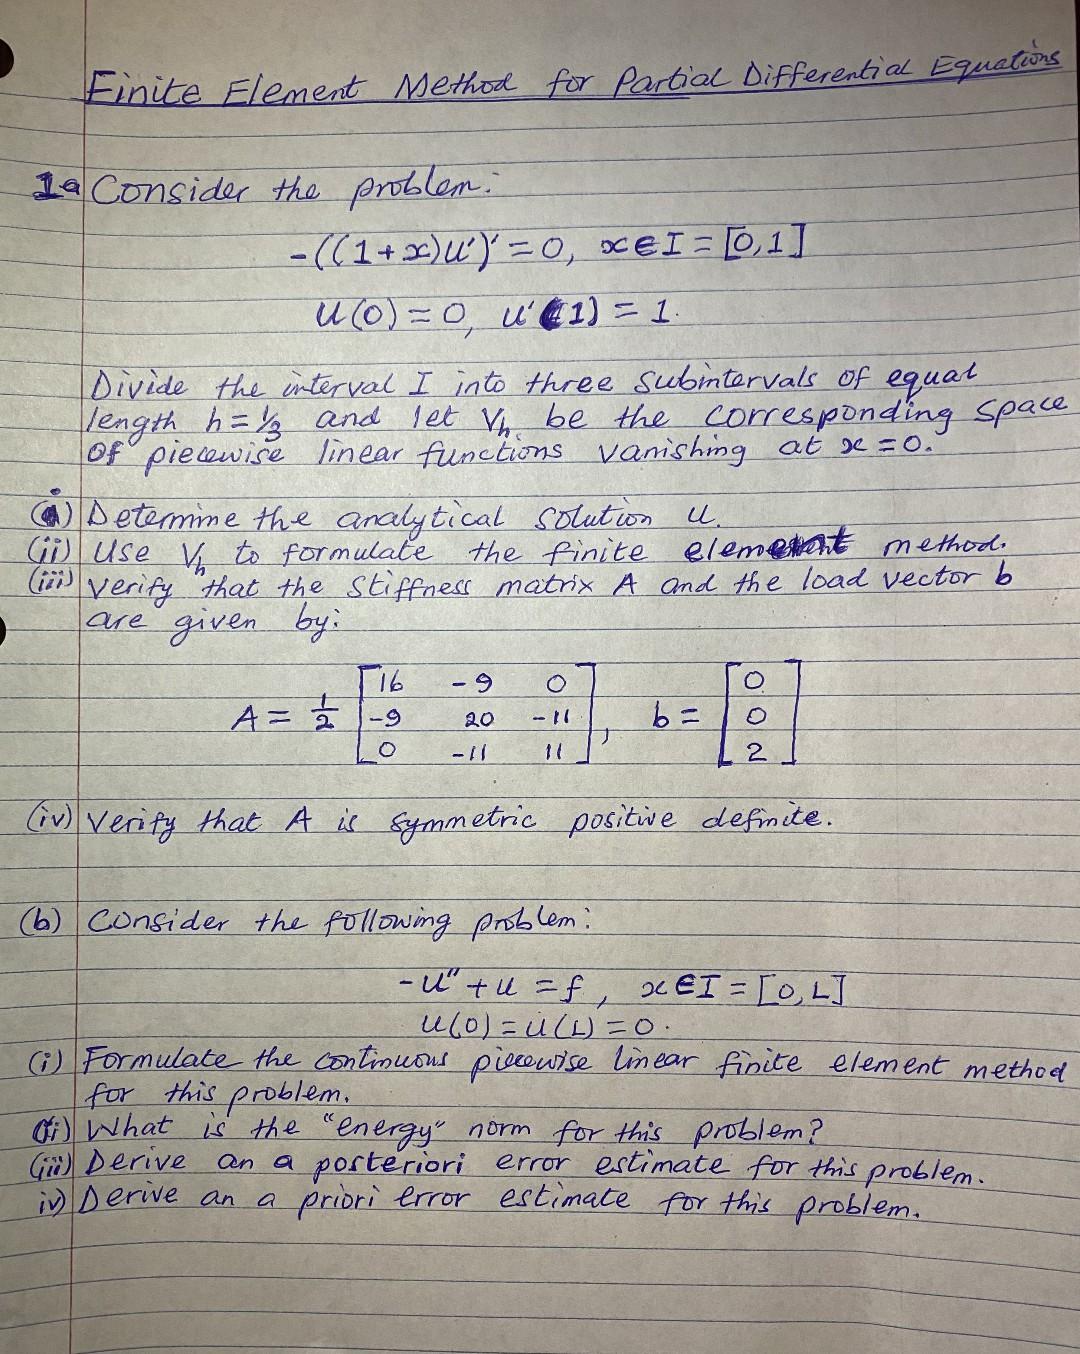 Finite Element Method for Partial Differential Equations
1a Consider the problem:
-((1+x)u')' = 0, x∈I = [0,1]
u(0) = 0, u'(1) = 1.
Divide the interval I into three subintervals of equal
length h = 1/3 and let Vh be the corresponding space
of piecewise linear functions vanishing at x = 0.
(i) Determine the analytical solution u.
(ii) Use Vh to formulate the finite element method.
(iii) Verify that the stiffness matrix A and the load vector b
are given by:
A = 1/2 [16 -9 0; -9 20 -11; 0 -11 11], b = [0; 0; 2]
(iv) Verify that A is symmetric positive definite.
(b) Consider the following problem:
-u'' + u = f, x∈I = [0,L]
u(0) = u(L) = 0.
(i) Formulate the continuous piecewise linear finite element method
for this problem.
(ii) What is the "energy" norm for this problem?
(iii) Derive an a posteriori error estimate for this problem.
iv) Derive an a priori error estimate for this problem.